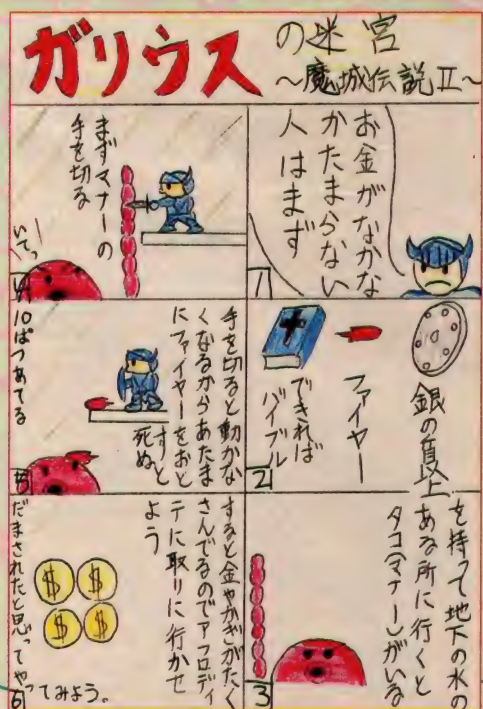 ガリウス
の迷宮
～魔城伝説II～
お金がなかな
かたまらない
人はまず
1
銀の
ファイヤー
できれば
バイブル
2
を持って地下の水の
ある所に行くと
タコ(マナー)がいる
3
まずマナーの
手を切る
いてっ
4
手を切ると動かな
くなるからあたま
にファイヤーをおと
すと
死ぬ
10ぱつあてる
5
すると金やかぎがたく
さんでるのでアフロディ
テに取りに行かせ
よう
$ $
$ $
だまされたと思ってやっ
てみよう。
6